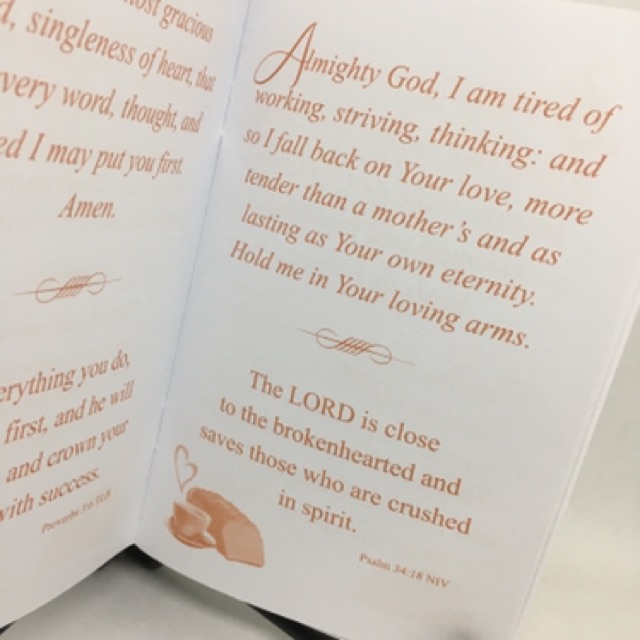 gracious
singleness of heart, that
very word, thought, and
I may put you first.
Amen.
erything you do,
first, and he will
and crown your
with success.
Proverbs
Almighty God, I am tired of
working, striving, thinking: and
so I fall back on Your love, more
tender than a mother's and as
lasting as Your own eternity.
Hold me in Your loving arms.
The LORD is close
to the brokenhearted and
saves those who are crushed
in spirit.
Psalm 34:18 NIV